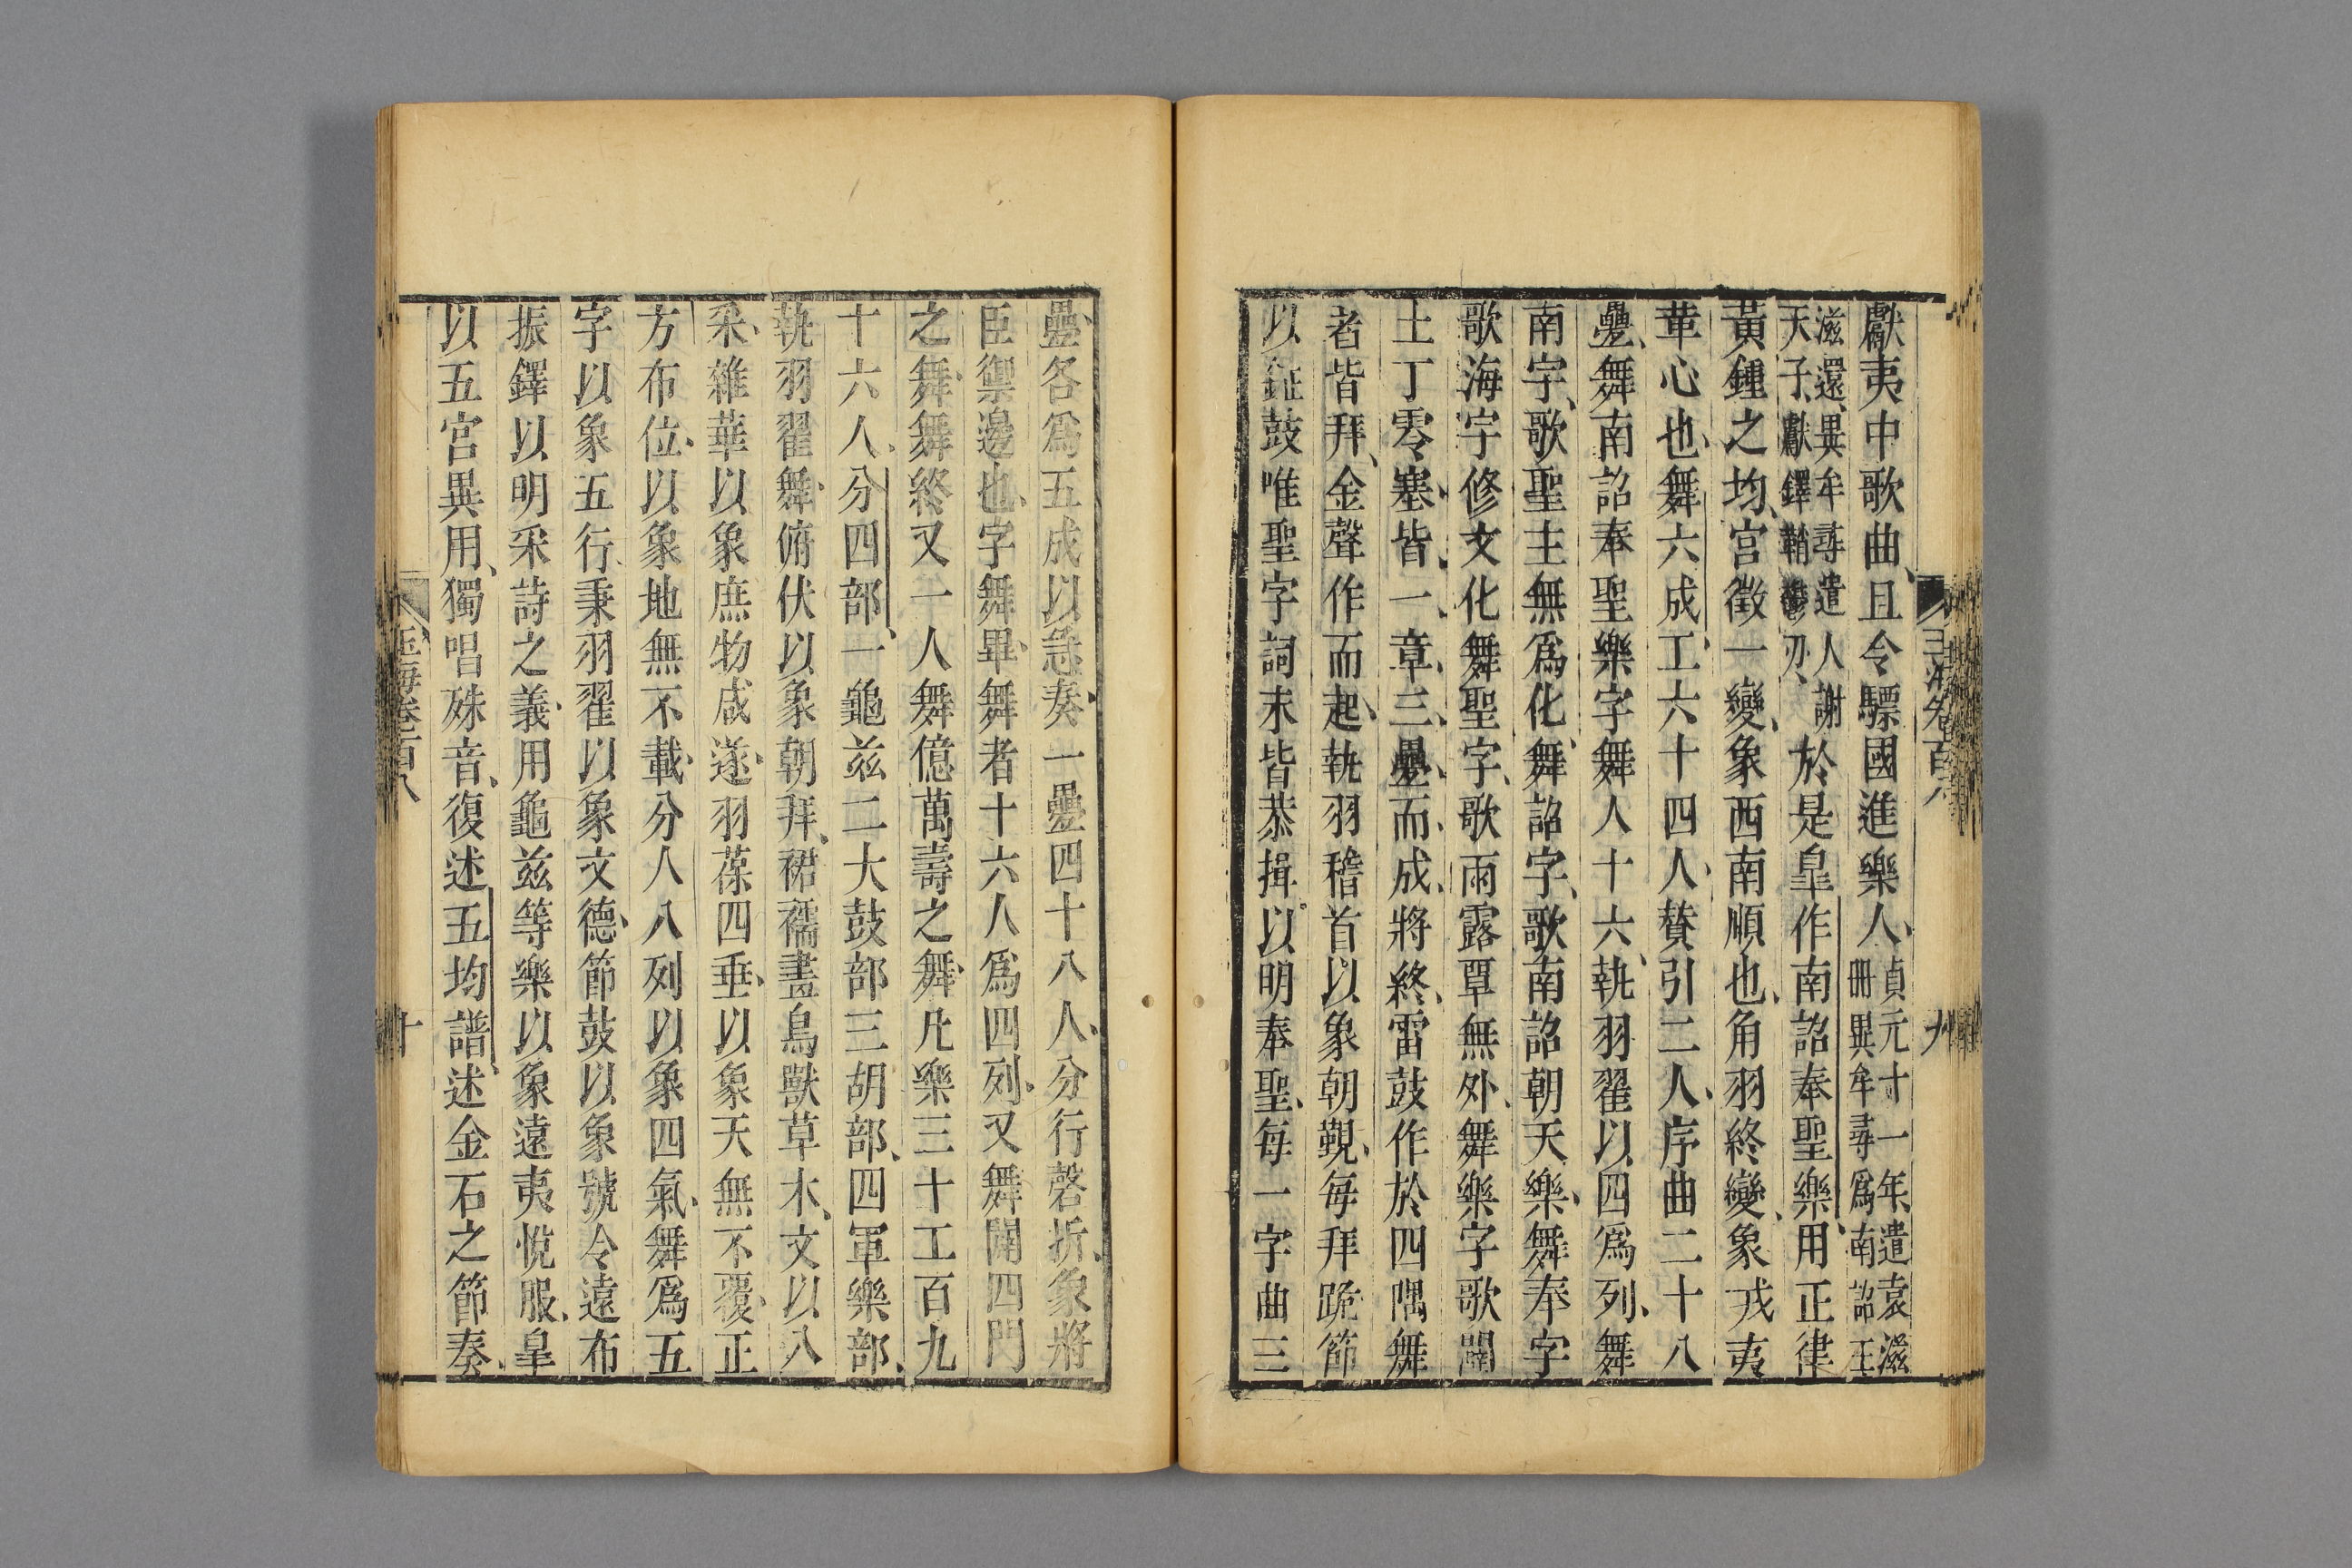 獻夷中歌曲且令驃國進樂人貞元十一年遣袁滋冊異牟尋爲南詔王
滋還異牟尋遣人謝天子獻鐸鞘刃於是皐作南詔奉聖樂用正律
黃鍾之均宮徵一變象西南順也角羽終變象戎夷
革心也舞六成工六十四人贊引二人序曲二十八
疊舞南詔奉聖樂字舞人十六執羽翟以四爲列舞
南字歌聖主無爲化舞詔字歌南詔朝天樂舞奉字
歌海宇修文化舞聖字歌雨露覃無外舞樂字歌闢
土丁零塞皆一章三疊而成將終雷鼓作於四隅舞
者皆拜金聲作而起執羽稽首以象朝覲每拜跪節
以鉦鼓唯聖字詞末皆恭揖以明奉聖每一字曲三
疊各爲五成以急奏一疊四十八人分行磬折象將
臣禦邊也字舞畢舞者十六人爲四列又舞闢四門
之舞舞終又一人舞億萬壽之舞凡樂三十工百九
十六人分四部一龜兹二大鼓部三胡部四軍樂部
執羽翟舞俯伏以象朝拜裙襦畫鳥獸草木文以八
采雜華以象庶物咸遂羽葆四垂以象天無不覆正
方布位以象地無不載分人八列以象四氣舞爲五
字以象五行秉羽翟以象文德節鼓以象號令遠布
振鐸以明采詩之義用龜兹等樂以象遠夷悅服皐
以五宮異用獨唱殊音復述五均譜述金石之節奏
玉海卷百八
十